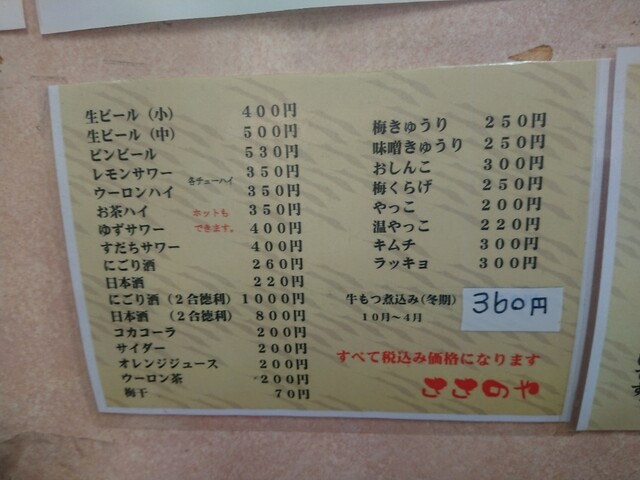 生ビール（小） 400円
生ビール（中） 500円
ビンビール 530円
レモンサワー 350円
各チューハイ
ウーロンハイ 350円
お茶ハイ 350円
ホットも
できます。
ゆずサワー 400円
すだちサワー 400円
にごり酒 260円
日本酒 220円
にごり酒（2合徳利） 1000円
日本酒 （2合徳利） 800円
コカコーラ 200円
サイダー 200円
オレンジジュース 200円
ウーロン茶 200円
梅干 70円
梅きゅうり 250円
味噌きゅうり 250円
おしんこ 300円
梅くらげ 250円
やっこ 200円
温やっこ 220円
キムチ 300円
ラッキョ 300円
牛もつ煮込み（冬期） 360円
10月～4月
すべて税込み価格になります
ささのや